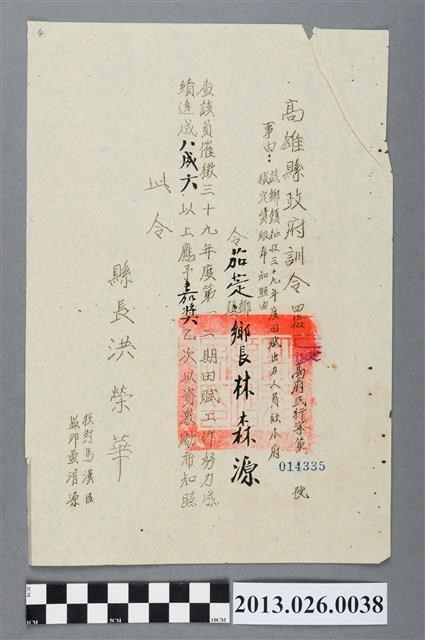 高雄縣政府訓令
四拾
高府民行字第
號
014335
事由：
該鄉鎮征收三十九年度田賦出力人員經本府
核定獎級希知照由
令茄萣鄉長林森源
鄉鎮
查該員催徵三十九年度第一二期田賦工作努力成
績達成八成六以上應予嘉獎乙次以資激勵希知照
此令
縣長洪榮華
校對馬漢臣
監印
5CM
10CM
2013.026.0038